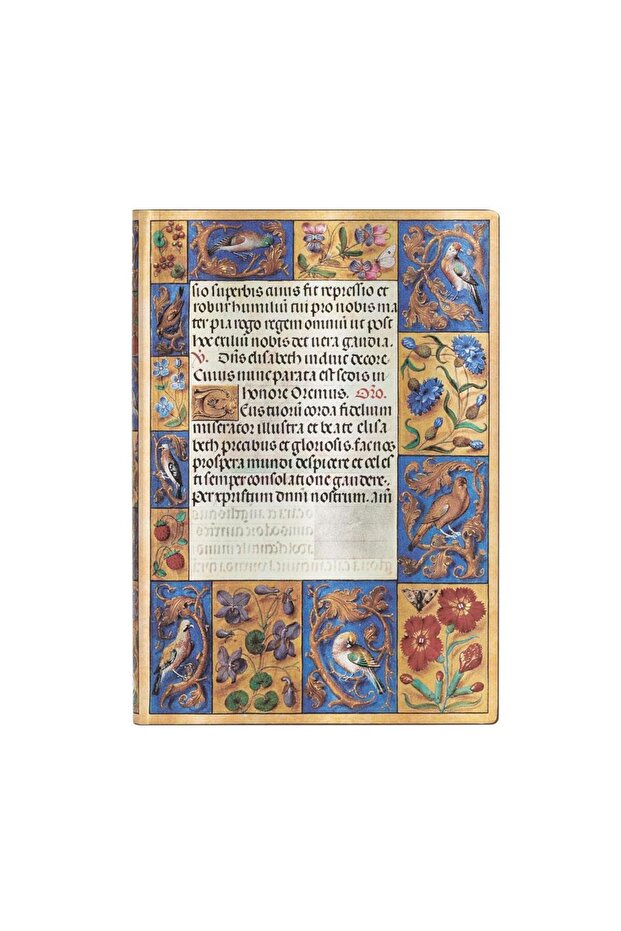 sio superbis cuius fit repressio et
robur humiliu cui pro nobis ma
ter pia rogo regem omniu ut post
hoc exiliu nobis det vera gaudia.
V. Diis elisabeth in diuie decore
Cuius nunc parata est sedis in
honore Oremus. Oro.
Tuorum corda fidelium
miserator illustra et beate elisa
beth precibus et gloriosis fac nos
prospera mundi despicere et celes
ti semper consolatione gaudere.
per xpristum dnm nostrum. am